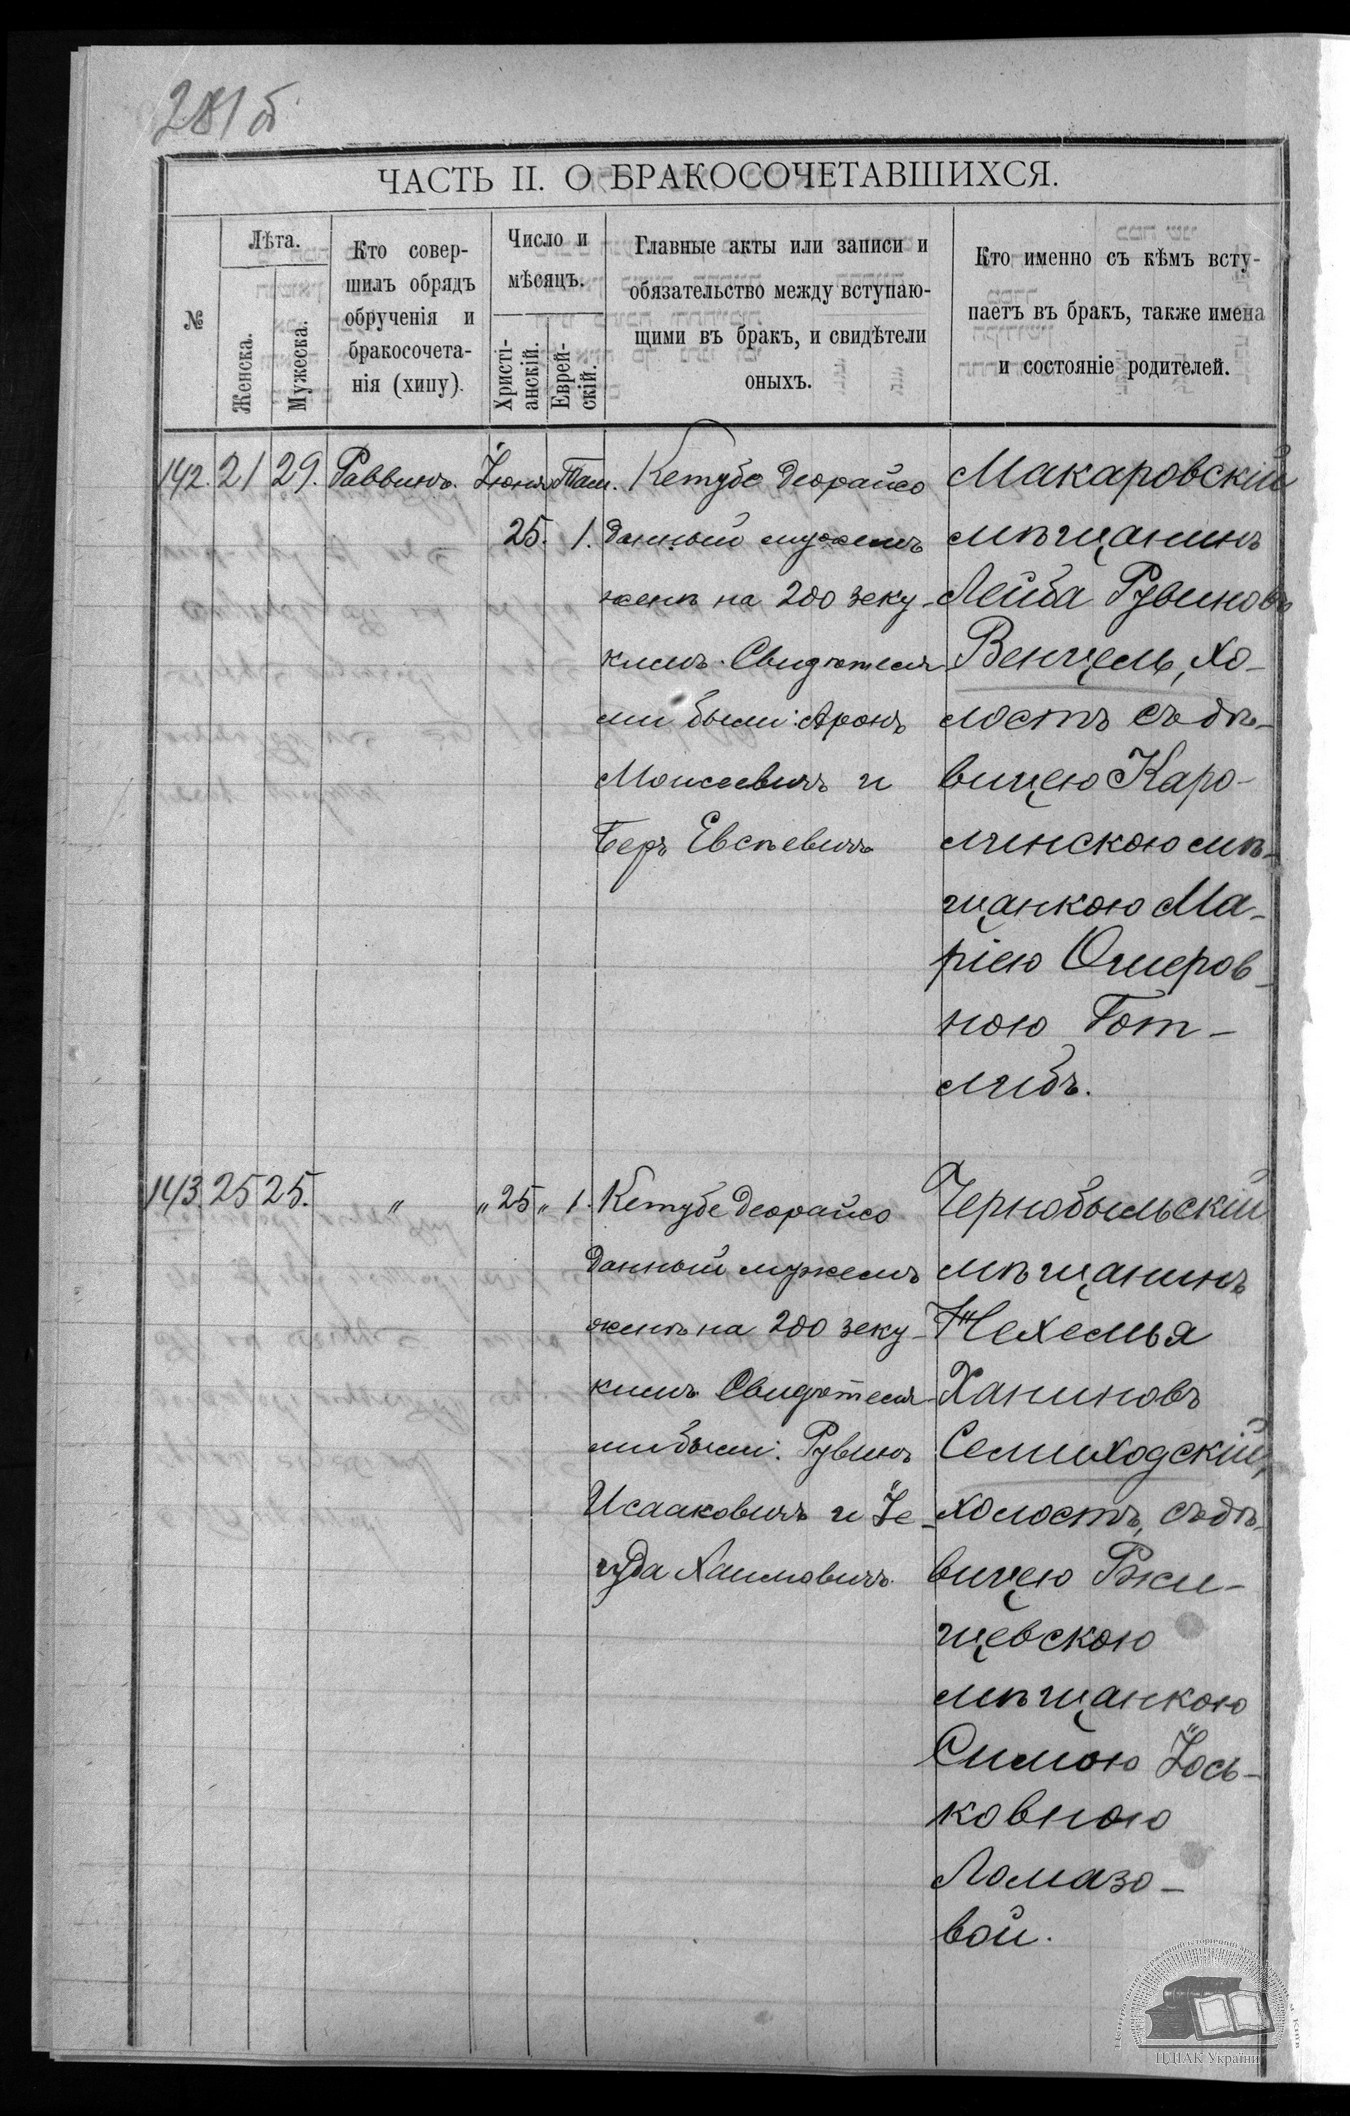 281 б
ЧАСТЬ II. О БРАКОСОЧЕТАВШИХСЯ.
№
Лѣта.
Женска.
Мужеска.
Кто совер-
шилъ обрядъ
обрученія и
бракосочета-
нія (хипу).
Число и
мѣсяцъ.
Христі-
анскій.
Еврей-
скій.
Главные акты или записи и
обязательство между вступаю-
щими въ бракъ, и свидѣтели
оныхъ.
Кто именно съ кѣмъ всту-
паетъ въ бракъ, также имена
и состояніе родителей.
142. 21 29. Раввинъ. Іюня Там.
25. 1.
Кетубе деорайсо
данный мужемъ
женѣ на 200 зеку-
кимъ. Свидѣтеля-
ми были: Аронъ
Моисеевичъ и
Беръ Евсѣевичъ
Макаровскій
мѣщанинъ
Лейба Рувиновъ
Венцель, хо-
лостъ съ дѣ-
вицею Каро-
линскою мѣ-
щанкою Ма-
ріею Ошеров-
ною Гот-
либъ.
143. 25 25. " " 25 " 1.
Кетубе деорайсо
данный мужемъ
женѣ на 200 зеку-
кимъ Свидѣтеля-
ми были: Рувинъ
Исааковичъ и Іе-
гуда Хаимовичъ.
Чернобыльскій
мѣщанинъ
Нехемья
Ханиновъ
Семиходскій,
холостъ, съ дѣ-
вицею Ржи-
щевскою
мѣщанкою
Симою Іось-
ковною
Ломазо-
вой.
ЦДІАК України